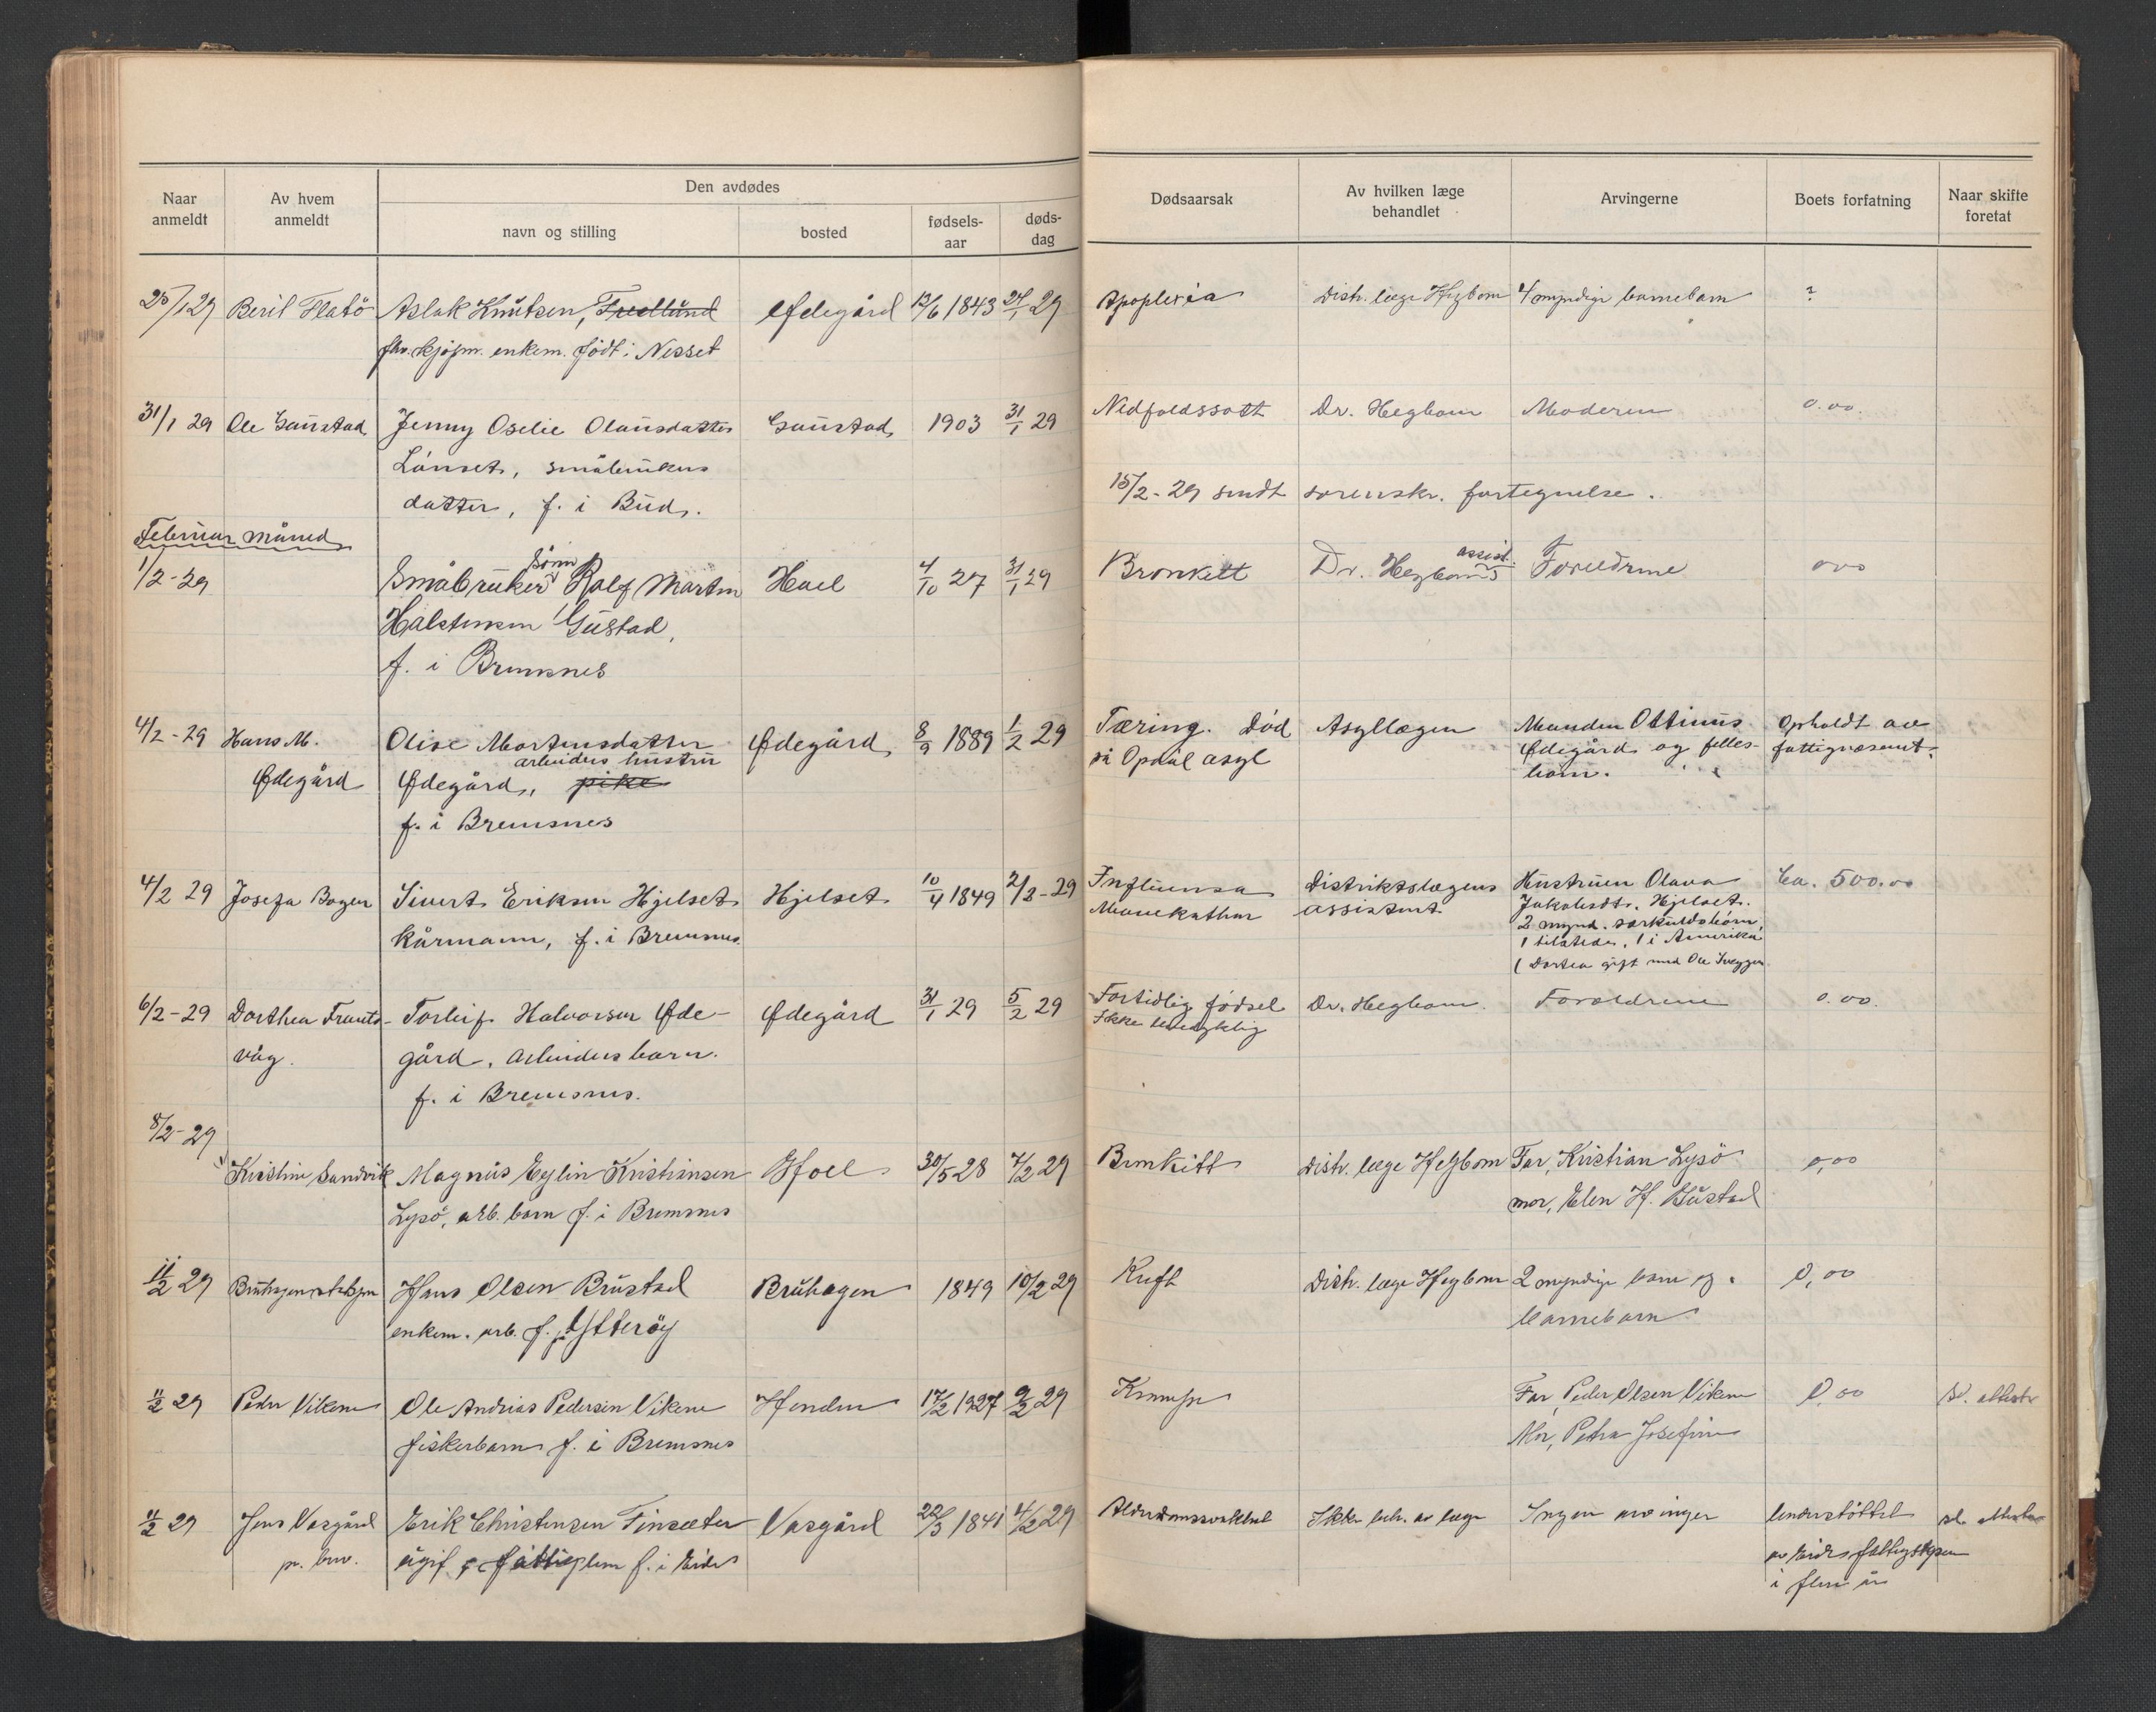 Naar anmeldt
Av hvem anmeldt
Den avdødes
navn og stilling
bosted
fødsels-aar
døds-dag
Dødsaarsak
Av hvilken læge behandlet
Arvingerne
Boets forfatning
Naar skifte foretat
25/1 29 Beril Flatö Aslak Knutsen, Fredlund Ødegård 13/6 1843 24/1 29 Apoplexia Distr. læge Hegbom 4 myndige barnebarn ?
fhv. kjøpm. enkem. født i Nesset
31/1 29 Ole Gaustad Jenny Oselie Olausdatter Gaustad 1903 31/1 29 Nedfaldssott Dr. Hegbom Moderen 0.00.
Lönset, småbrukers
datter, f. i Bud.
15/2-29 sendt sorenskr. fortegnelse.
Februar måned
1/2-29 Småbruker sönn Rolf Martin Hoel 4/10 27 31/1 29 Bronkitt Dr. Hegboms assist. Foreldrene 0,00
Halstensen Gustad,
f. i Bremsnes
4/2-29 Hans M. Olise Mortensdatter Ødegård 8/9 1889 1/2 29 Tæring. Död Asyllægen Manden Ottinus Opholdt av
arbeiders hustru
Ødegård Ødegård, pike på Opdal asyl Ødegård og felles- fattigvæsenet.
f. i Bremsnes barn.
4/2 29 Josefa Bogen Sivert Eriksen Hjelset Hjelset 10/4 1849 2/2-29 Influensa Distriktslægens Hustruen Olava Ca. 500.00
kårmann, f. i Bremsnes. assistent Jakobsdt. Hjelset.
2 mynd. særkuldsbörn
1 tilstede, 1 i Amerika
( Dortea gift med Ole
6/2-29 Dorthea Frants- Torleif Halvorsen Øde- Ødegård 31/1 29 5/2 29 Fortidlig födsel Dr. Hegbom. Foreldrene 0.00.
våg. gård, arbeidersbarn. Ikke
f. i Bremsnes.
8/2-29
Kristine Sandvik Magnus Eylin Kristiansen Hoel 30/5 28 7/2 29 Bronkitt Distr. læge Hegbom Far, Kristian Lysö 0,00
Lysö, arb. barn f. i Bremsnes mor, Elen H. Gustad
11/2 29 Hans Olsen Brustad Bruhagen 1849 10/2 29 Kreft Distr. læge Hegbom 2 myndige barn og 0,00
enkem. arb. f. på Ytterøy barnebarn
11/2 29 Peder Vikene Ole Andrias Pedersen Vikene Henden 17/2 1927 9/2 29 Krampe Far, Peder Olsen Vikene 0,00
fiskerbarn f. i Bremsnes Mor, Petra Josefine
11/2 29 Jens Vasgård Erik Christensen Finsæter Vasgård 22/3 1841 4/2 29 Alderdomssvakhet Ikke beh. av læge Ingen arvinger understöttet
p. brev. ugif. fattiglem f. i Eide av Eide
i flere år